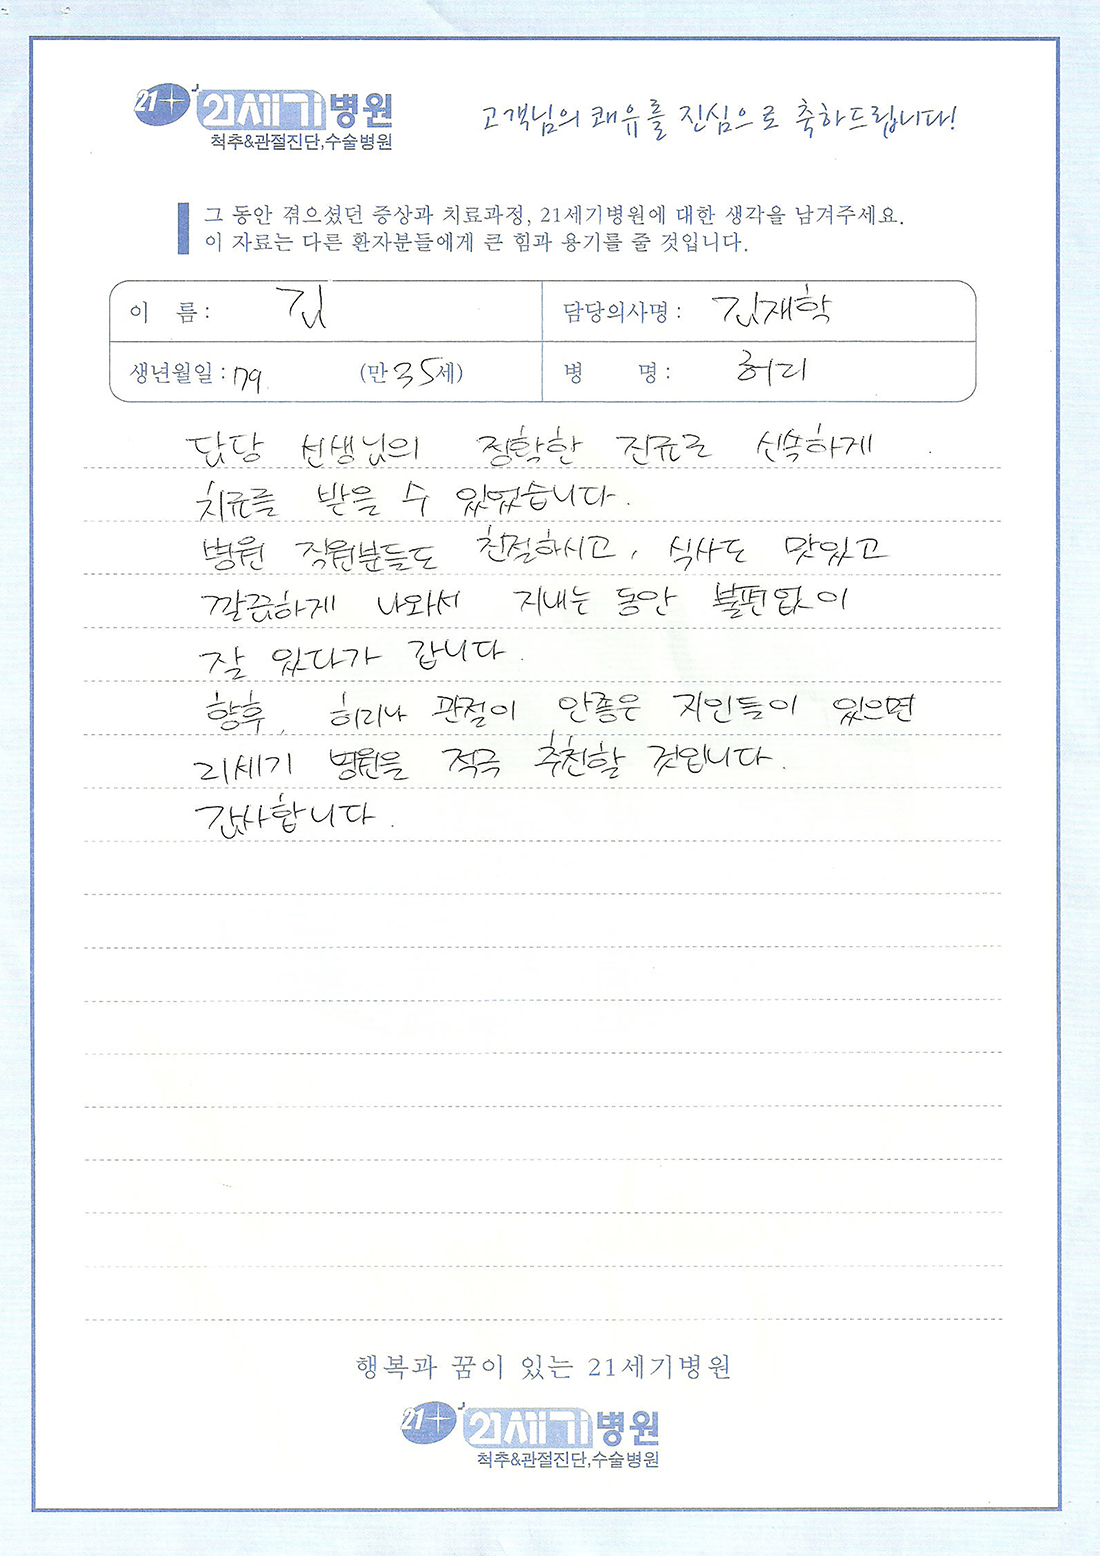 21+ 21세기병원
척추&관절진단,수술병원
고객님의 쾌유를 진심으로 축하드립니다!
그 동안 겪으셨던 증상과 치료과정, 21세기병원에 대한 생각을 남겨주세요.
이 자료는 다른 환자분들에게 큰 힘과 용기를 줄 것입니다.
이 름 : 김
담당의사명 : 김재학
생년월일 : 179 (만 35세)
병 명 : 허리
담당 선생님의 정확한 진료로 신속하게
치료를 받을 수 있었습니다.
병원 직원분들도 친절하시고, 식사도 맛있고
깔끔하게 나와서 지내는 동안 불편없이
잘 있다가 갑니다.
향후, 허리나 관절이 안좋은 지인들이 있으면
21세기 병원을 적극 추천할 것입니다.
감사합니다.
행복과 꿈이 있는 21세기병원
21+ 21세기병원
척추&관절진단,수술병원